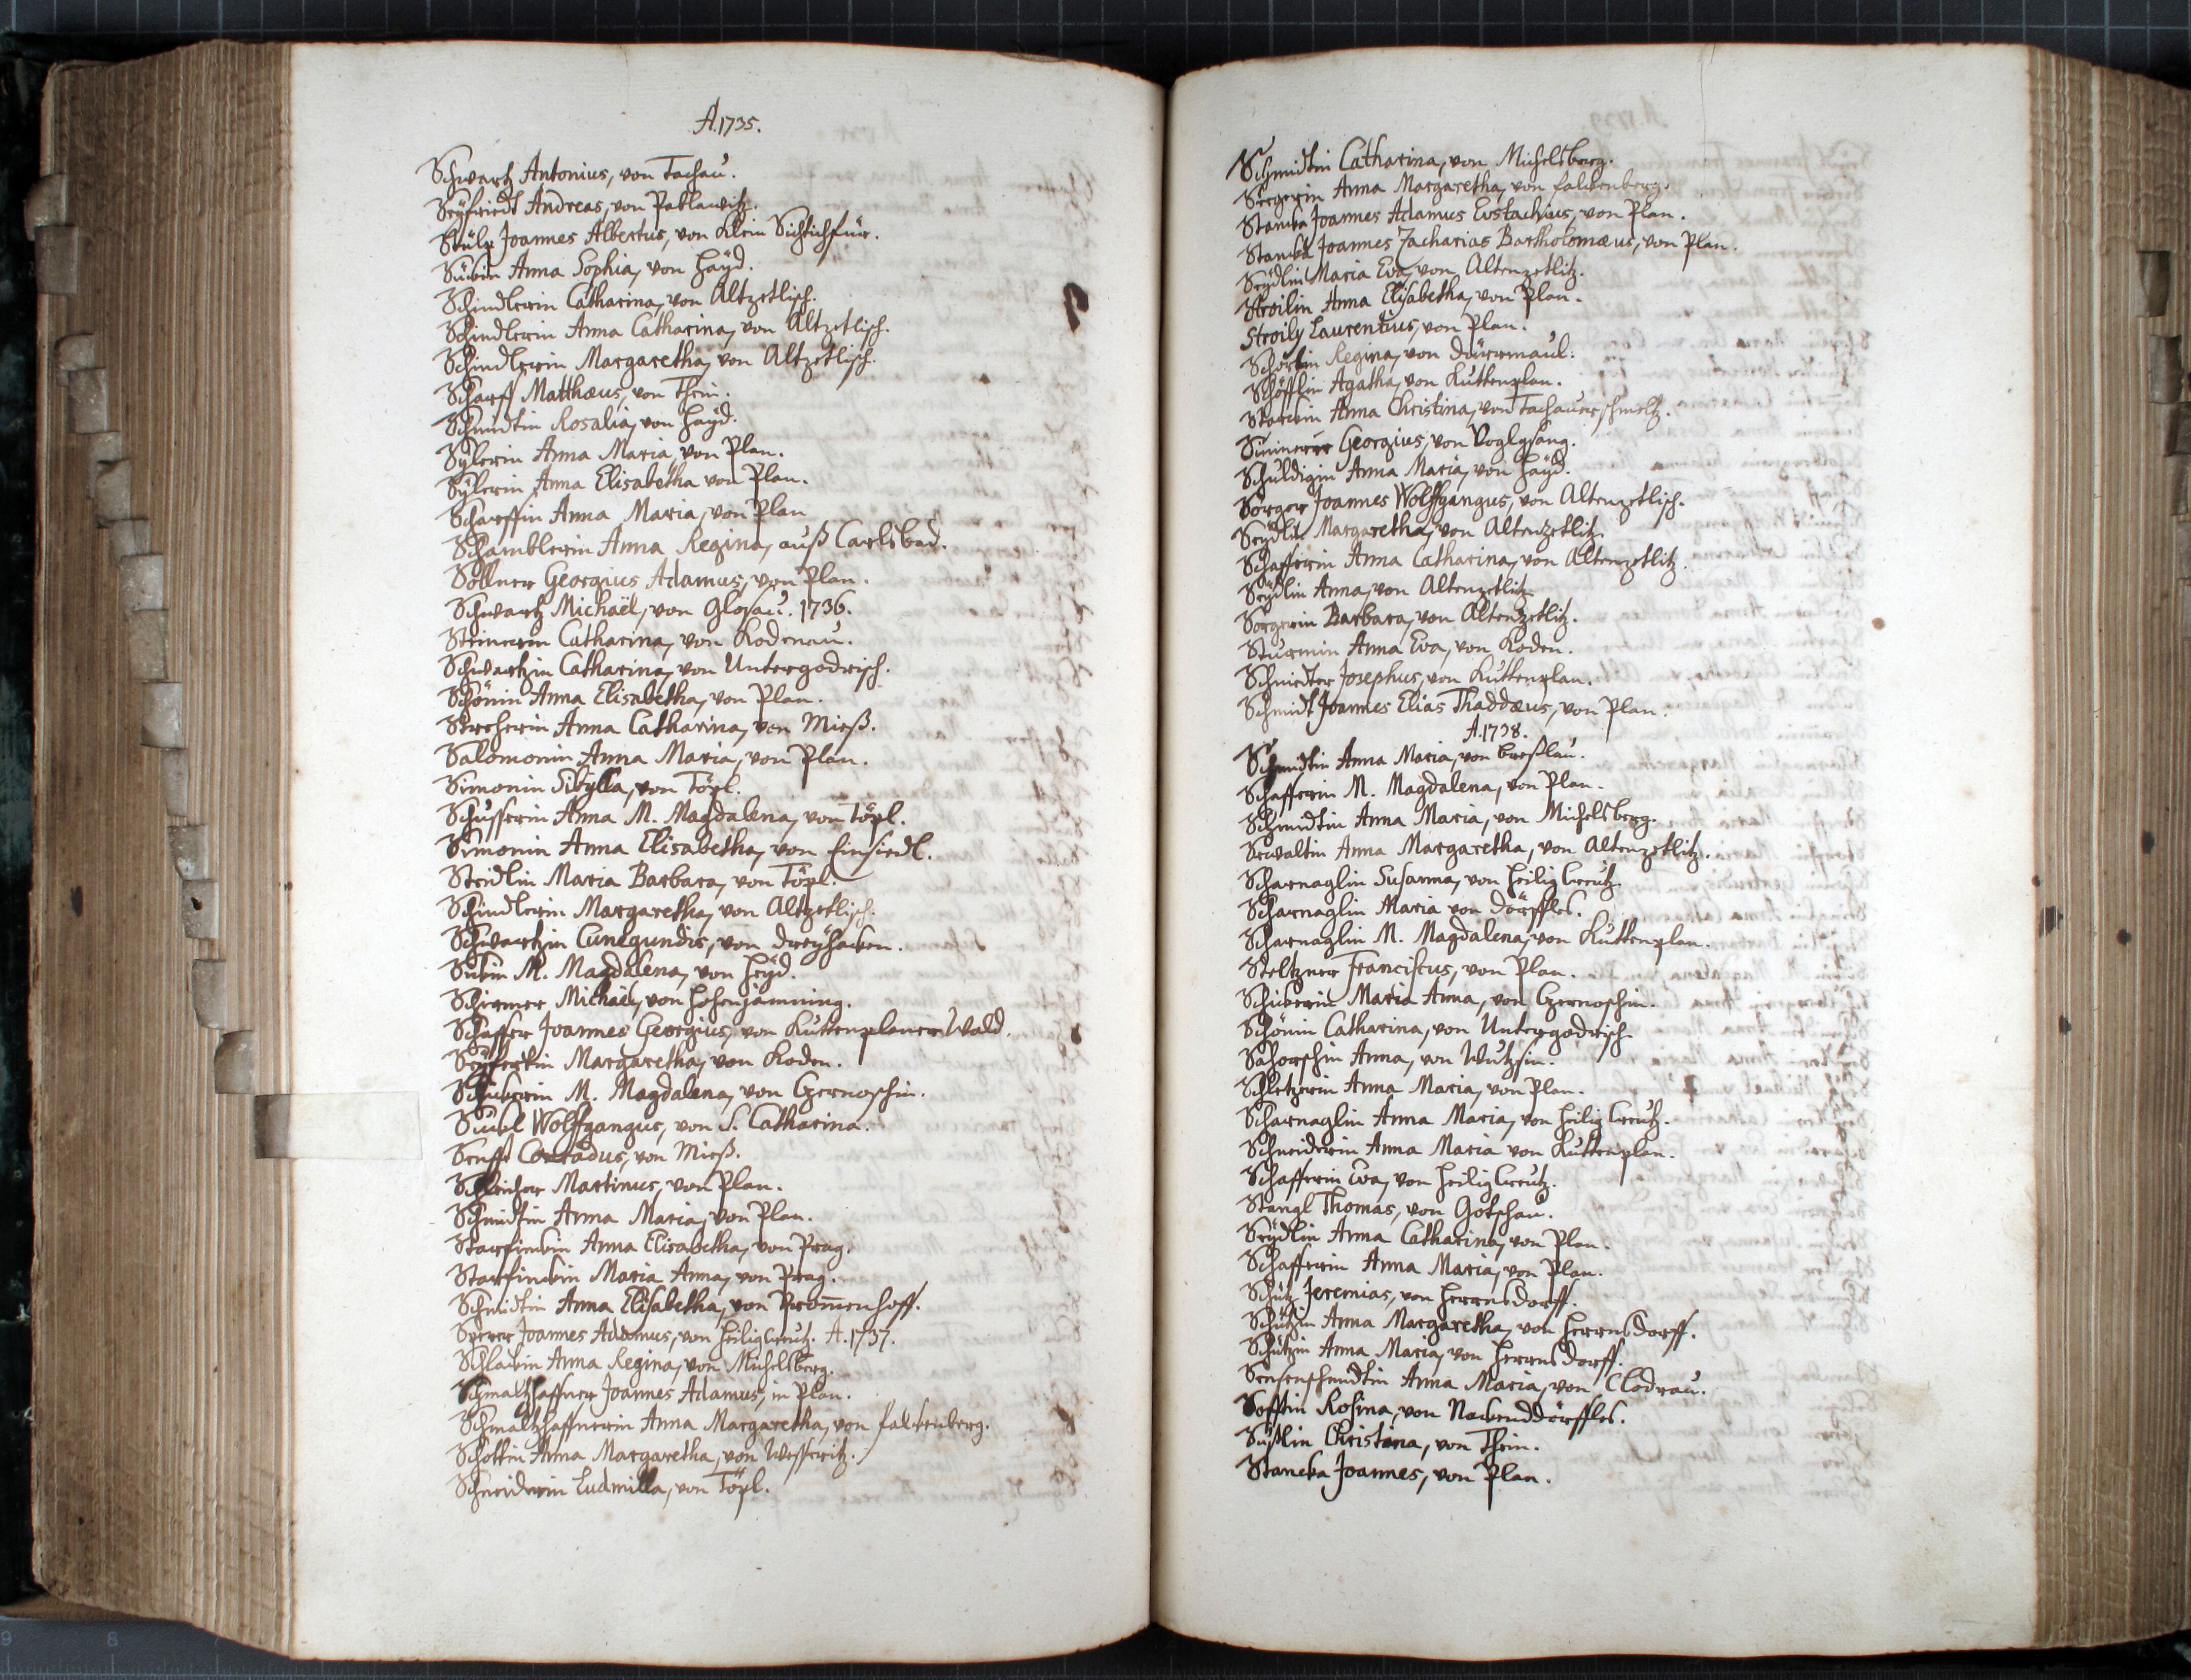 A. 1735.
Schwartz Antonius, von Tachau.
Seÿfriedt Andreas, von Pablawitz.
Joannes Albertus, von Klein Sichtichfür.
Anna Sophia, von Haÿd.
Schindlerin Catharina, von Altzetlisch.
Schindlerin Anna Catharina, von Altzetlisch.
Schindlerin Margaretha, von Altzetlisch.
Scharff Matthæus, von Thein.
Schmidtin Rosalia, von Haÿd.
Sÿlerin Anna Maria, von Plan.
Sÿlerin Anna Elisabetha von Plan.
Scharffin Anna Maria, von Plan
Schamblerin Anna Regina, auß Carlsbad.
Söllner Georgius Adamus, von Plan.
Schwartz Michaël, von Glosau. 1736.
Steinerin Catharina, von Kodenau.
Schwartzin Catharina, von Untergodrisch.
Schönin Anna Elisabetha, von Plan.
Anna Catharina, von Mieß.
Salomonin Anna Maria, von Plan.
Simonin Sibÿlla, von Töpl.
Schusserin Anna M. Magdalena, von Töpl.
Simonin Anna Elisabetha, von Einsiedl.
Steidlin Maria Barbara, von Töpl.
Schindlerin Margaretha, von Altzetlisch.
Schwartzin Cunegundis, von Dreÿhacken.
M. Magdalena, von Heÿd.
Schirmer Michaël, von Hohenjamning.
Schaffer Joannes Georgius, von Kuttenplaner Wald.
Seÿfertin Margaretha, von Koden.
M. Magdalena, von Czernoschin.
Wolffgangus, von S. Catharina.
Senfft Conradus, von Mieß.
Schleicher Martinus, von Plan.
Schmidtin Anna Maria, von Plan.
Anna Elisabetha, von Prag.
Maria Anna, von Prag.
Schmidtin Anna Elisabetha, von Prom̄enhoff.
Joannes Adamus, von Heilig Creutz. A. 1737.
Anna Regina, von Michelsberg.
Schmaltzhaffner Joannes Adamus, in Plan.
Schmaltzhaffnerin Anna Margaretha, von Falkenberg.
Schottin Anna Margaretha, von Wesseritz.
Schneiderin Ludmilla, von Töpl.
Schmidtin Catharina, von Michelsberg.
Seegerin Anna Margaretha, von Falckenberg.
Stancka Joannes Adamus Eustachius, von Plan.
Stancka Joannes Zacharias Bartholomæus, von Plan.
Seÿdlin Maria Eva, von Altenzetlitz.
Stroilin Anna Elisabetha, von Plan.
Stroily Laurentius, von Plan.
Regina, von Dürrmaul.
Schöfflin Agatha, von Kuttenplan.
Anna Christina, von Tachauerschmeltz.
Georgius, von Voglgsang.
Schuldigin Anna Maria, von Haÿd.
Sorger Joannes Wolffgangus, von Altenzetlisch.
Seÿdlin Margaretha, von Altenzetlitz.
Schafferin Anna Catharina, von Altenzetlitz.
Seÿdlin Anna, von Altenzetlitz.
Sorgerin Barbara, von Altenzetlitz.
Sturmin Anna Eva, von Koden.
Schnidter Josephus, von Kuttenplan.
Schmidt Joannes Elias Thaddæus, von Plan.
A. 1738.
Schmidtin Anna Maria, von Breßlau.
Schafferin M. Magdalena, von Plan.
Schmidtin Anna Maria, von Michelsberg.
Sewaltin Anna Margaretha, von Altenzetlitz.
Scharnaglin Susanna, von Heilig Creutz.
Scharnaglin Maria von Dörffles.
Scharnaglin M. Magdalena, von Kuttenplan.
Steltzner Franciscus, von Plan.
Maria Anna, von Czernoschin.
Schönin Catharina, von Untergodrisch.
Sahorschin Anna, von Wutzsin.
Schletzerin Anna Maria, von Plan.
Scharnaglin Anna Maria, von Heilig Creutz.
Schneiderin Anna Maria von Kuttenplan.
Schafferin Eva, von Heilig Creutz.
Stangl Thomas, von Gotschau.
Seÿdlin Anna Catharina, von Plan.
Schafferin Anna Maria, von Plan.
Schütz Jeremias, von Herrnsdorff.
Schützin Anna Margaretha, von Herrnsdorff.
Schützin Anna Maria, von Herrnsdorff.
Sensenschmidtin Anna Maria, von Clodrau.
Rosina, von Nackenddörffles.
Süßlin Christina, von Thein.
Stancka Joannes, von Plan.